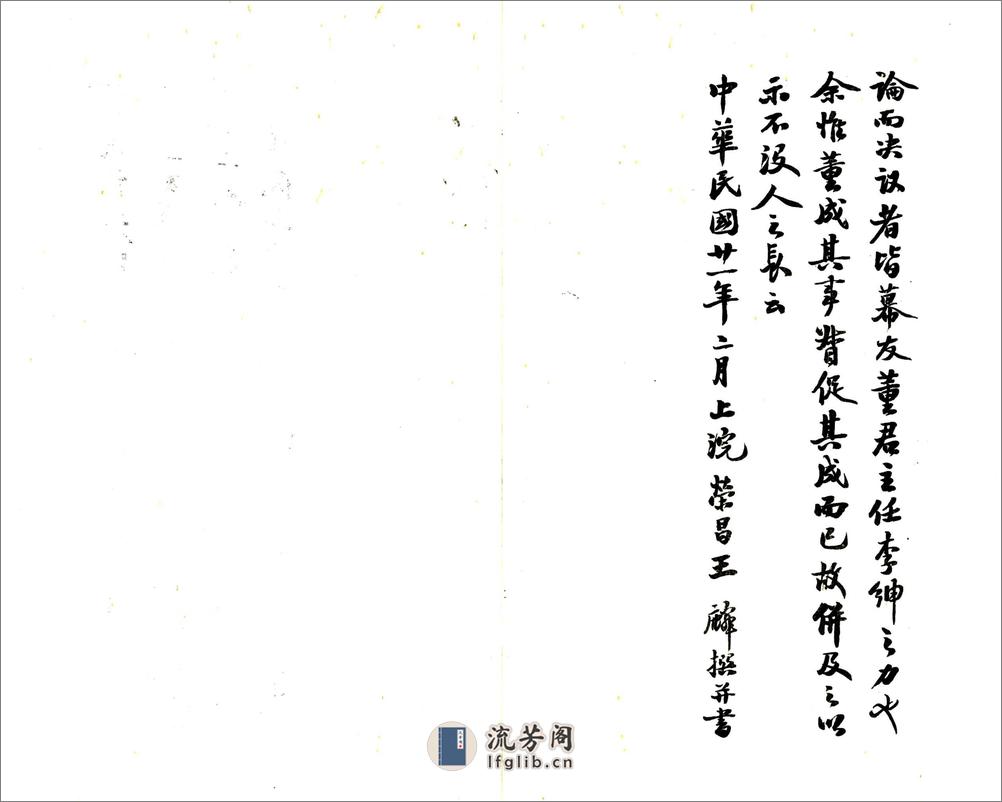 論而決议者皆幕友董君主任李紳之力也
余惟董成其事督促其成而已故併及之以
示不没人之長云
中華民國廿一年二月上浣榮昌王麟撰并書
流芳阁
lfglib.cn